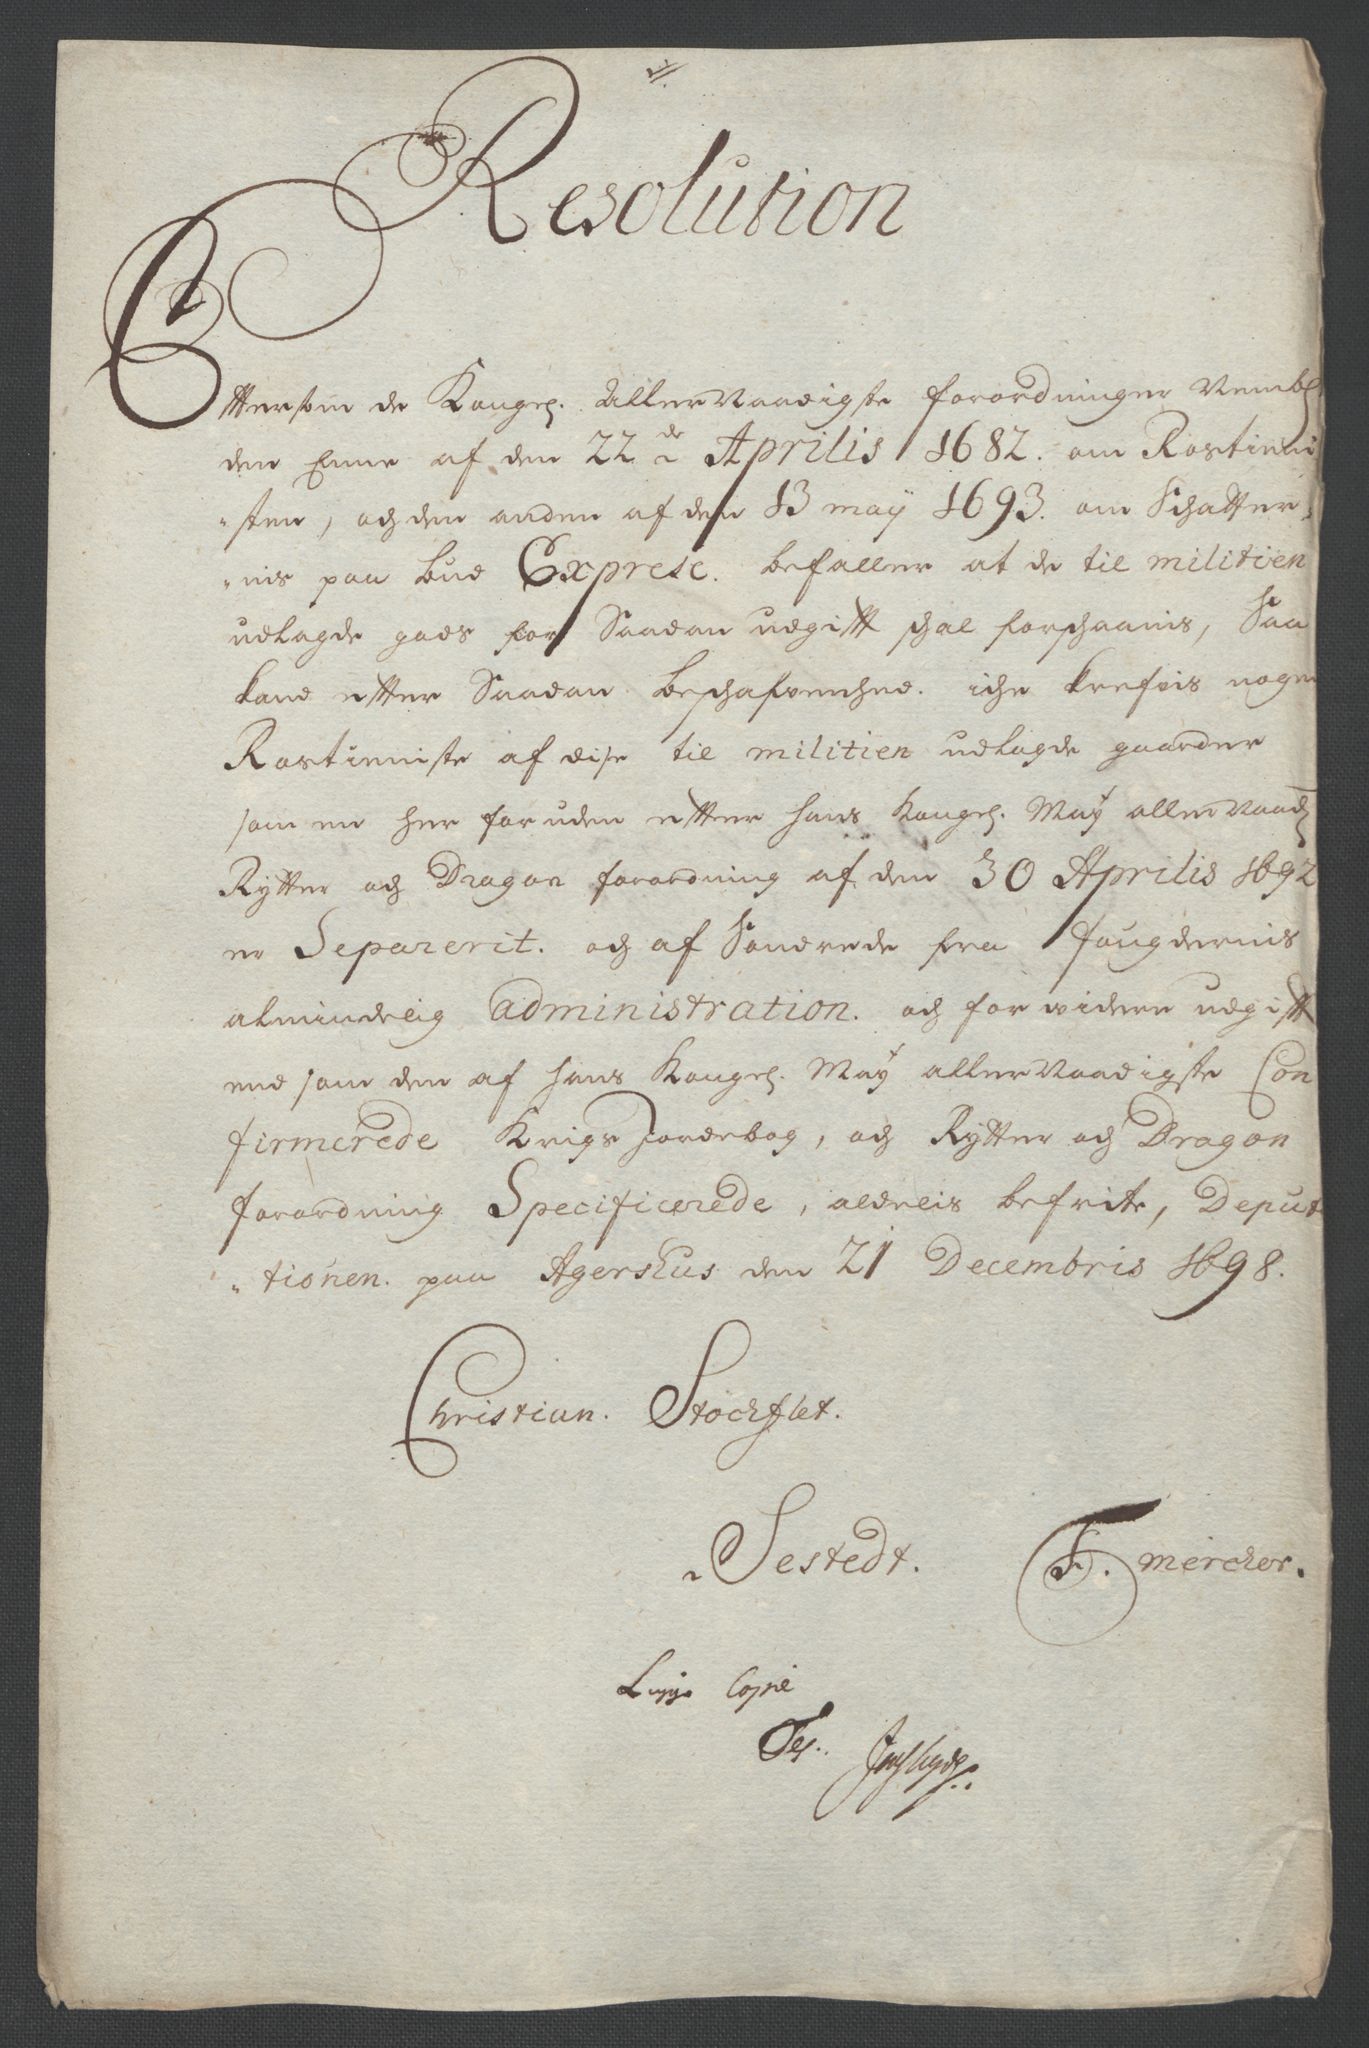 Resolution
Efftersom de Kongel. Allernaadigste forordninger Nembl.
den Eene af den 22de Aprilis 1682. om Rostieni
-sten, och den anden af den 13 maij 1693. om Schatter-
-nis paa bud Exprese. befaller at de til militien
udlagde gods for Saadan udgifft schal forschaanis, Saa
kand effter Saadan beschafvenhed. iche krefvis nogen
Rostieniste af disse til militien udlagde gaarder
som en her foruden effter hans Kongel. Mayt allernaad.
Rytter och Dragon forordning af den 30 Aprilis 1692
er Separerit. och af Sondrede fra fougdernis
almindelig administration. och for widere udgifft
end som den af hans Kongel. Mayt allernaadigste Con
firmerede Krigs Jordebog, och Rytter och Dragon
forordning Specificerede, aldelis befrite, Deputa
-tionen. paa Agershus den 21 Decembris 1698.
Christian. Stochflet.
Sestedt. F. mercker.
Copie
Test.